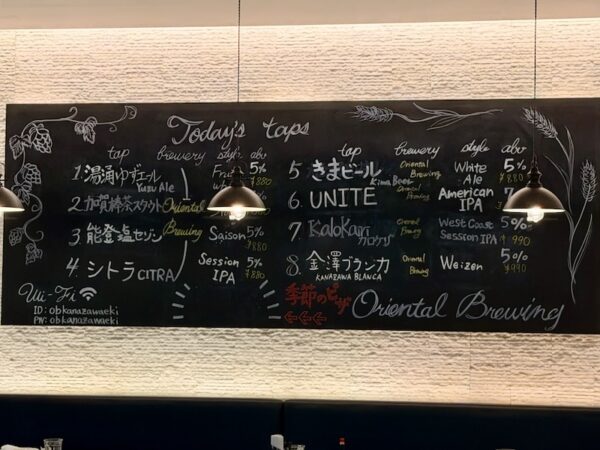 Today's taps
tap brewery style abv
1. 湯涌ゆずエール Yuzu Ale 5% ¥880
2. 加賀棒茶スタウト Oriental Brewing
3. 能登塩セゾン Saison 5% ¥880
4. シトラ CITRA Session IPA 5% ¥880
Wi-Fi
ID: obkanazawaeki
PW: obkanazawaeki
tap brewery style abv
5 きまビール Kima Beer Oriental Brewing White Ale 5% ¥880
6. UNITE Oriental Brewing American IPA
7 Kalokari カロケリ Oriental Brewing West Coast Session IPA 5% ¥990
8. 金澤ブランカ KANAZAWA BLANCA Oriental Brewing Weizen 5% ¥990
季節のピザ
Oriental Brewing